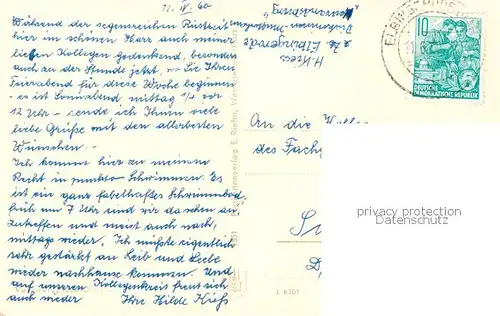 11. IV. 60
Während der segensreichen Rastzeit
hier im schönen Harz auch meiner
lieben Kollegen gedenkend, besonders
auch an der Stunde jetzt, wo Sie Ihren
Feierabend für diese Woche beginnen
- es ist Sonnabend mittag 1/4 vor
12 Uhr - sende ich Ihnen viele
liebe Grüße mit den allerbesten
Wünschen. -
Ich komme hier zu meinem
Recht in punkto Schwimmen. Es
ist ein ganz fabelhaftes Schwimmbad,
früh um 7 Uhr sind wir da schon
und meist auch nach-
mittags wieder. Ich müßte eigentlich
sehr gestärkt an Leib und Seele
wieder nachhause kommen. Und
auf unseren Kollegenkreis freut sich
auch wieder Ihre Hilde Kieß
H. Kiess
z. Zt. Elbingerode
Diakonissen-Mutterhaus
An die
des Fache
10
DEUTSCHE
DEMOKRATISCHE REPUBLIK
Verlag E. Riehm,
L 6301
privacy protection
Datenschutz